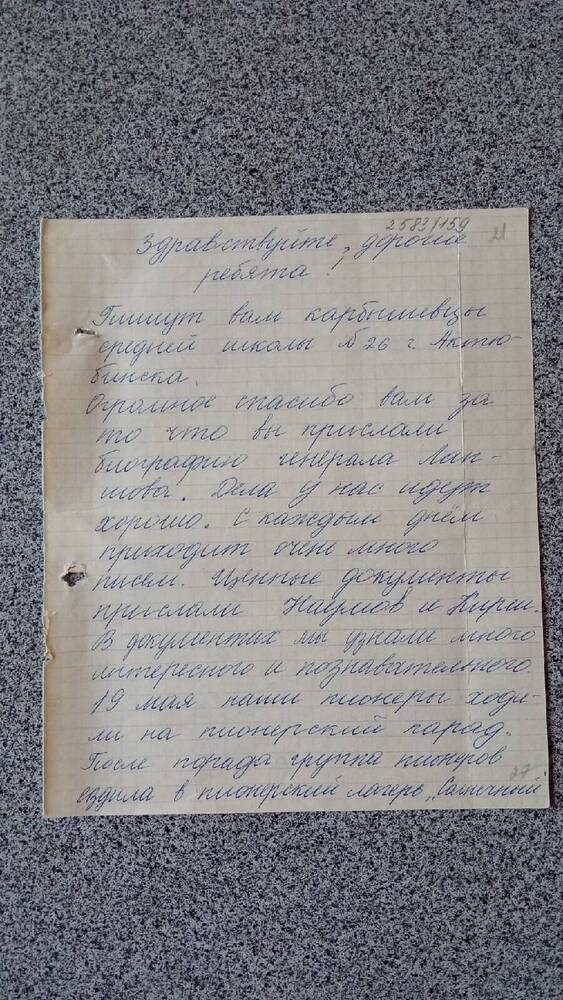 2583/159
21
Здравствуйте, дорогие
ребята!
Пишут вам карбышевцы
средней школы №26 г. Актю-
бинска.
Огромное спасибо вам за
то что вы прислали
биографию генерала Лап-
шова. Дела у нас идут
хорошо. С каждым днём
приходит очень много
писем. Ценные документы
прислали Наумов и
В документах мы узнали много
интересного и познавательного.
19 мая наши пионеры ходи-
ли на пионерский парад.
После парада группа пионеров
ездила в пионерский лагерь „Солнечный"
27